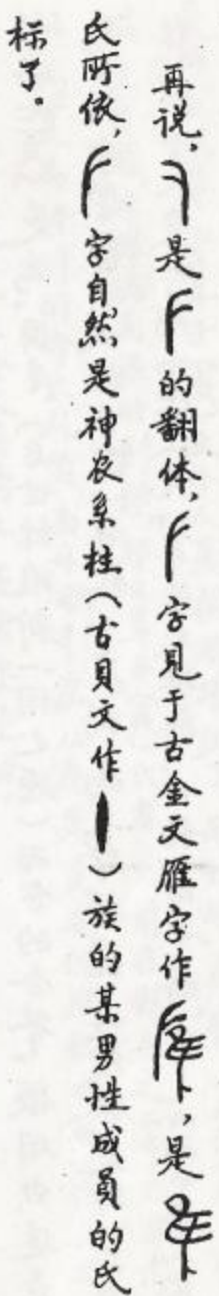 再说，是的翻体，字見于古金文雁字作，是
氏所依，字自然是神农系柱（古貝文作）族的某男性成員的氏
标了。